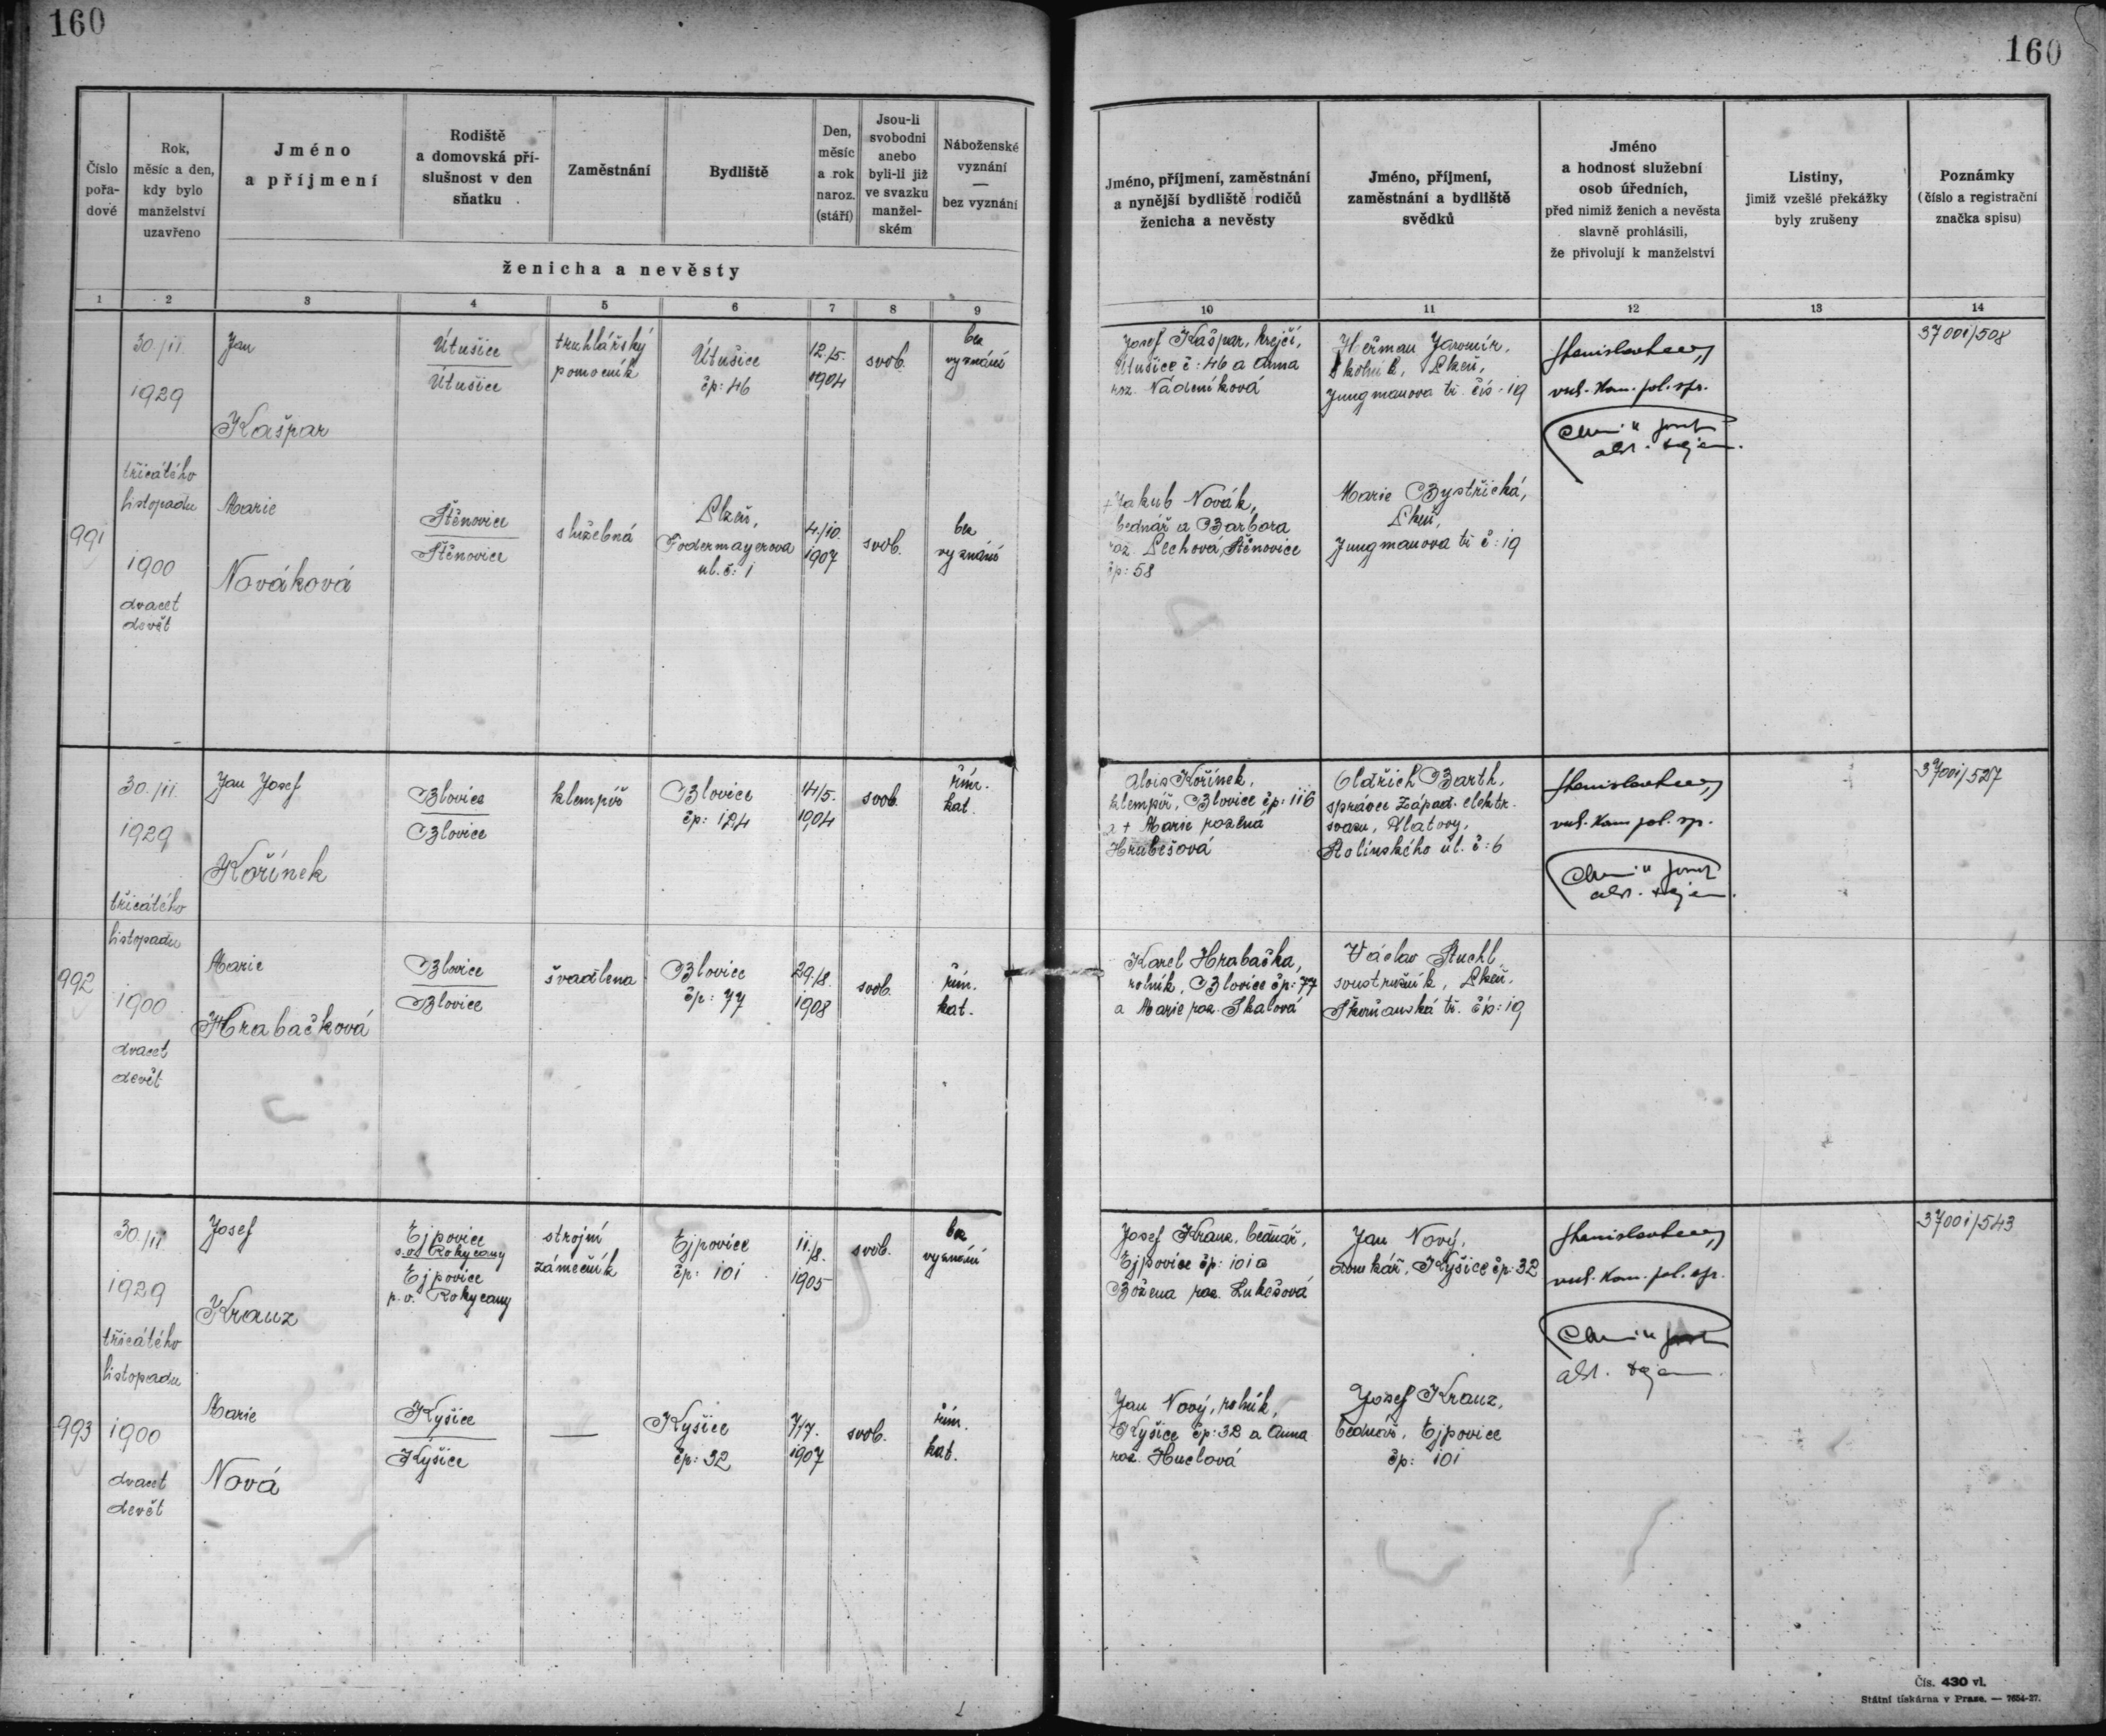 160
160
Číslo
pořa-
dové
Rok,
měsíc a den,
kdy bylo
manželství
uzavřeno
Jméno
a příjmení
Rodiště
a domovská pří-
slušnost v den
sňatku
Zaměstnání
Bydliště
Den,
měsíc
a rok
naroz.
(stáří)
Jsou-li
svobodni
anebo
byli-li již
ve svazku
manžel-
ském
Náboženské
vyznání
—
bez vyznání
ženicha a nevěsty
Jméno, příjmení, zaměstnání
a nynější bydliště rodičů
ženicha a nevěsty
Jméno, příjmení,
zaměstnání a bydliště
svědků
Jméno
a hodnost služební
osob úředních,
před nimiž ženich a nevěsta
slavně prohlásili,
že přivolují k manželství
Listiny,
jimiž vzešlé překážky
byly zrušeny
Poznámky
(číslo a registrační
značka spisu)
1 2 3 4 5 6 7 8 9 10 11 12 13 14
991
30./11.
1929
třicátého
listopadu
1900
dvacet
devět
Jan
Kašpar
Útušice
Útušice
truhlářský
pomocník
Útušice
čp: 46
12./5.
1904
svob.
bez
vyznání
Josef Kašpar, krejčí,
Útušice č: 46 a Anna
roz. Nádeníková
Heřman Jaromír,
školník, Plzeň,
Jungmanova tř. čís. 19
vrch. kom. pol. spr.
37001/508
Marie
Nováková
Štěnovice
Štěnovice
služebná
Plzeň,
Fodermayerova
ul. č: 1
4./10.
1907
svob.
bez
vyznání
+ Jakub Novák,
bednář a Barbora
roz. Pechová, Štěnovice
čp: 58
Marie Bystřická,
Plzeň,
Jungmanova tř č: 19
992
30./11.
1929
třicátého
listopadu
1900
dvacet
devět
Jan Josef
Kořínek
Blovice
Blovice
klempíř
Blovice
čp: 124
14/5.
1904
svob.
řím.
kat.
Alois Kořínek,
klempíř, Blovice čp: 116
a + Marie rozená
Hrubešová
Oldřich Barth,
správce Západ. elektr.
svazu, Klatovy,
ul. č: 6
vrch. kom. pol. sp.
37001/527
Marie
Hrabačková
Blovice
Blovice
švadlena
Blovice
čp: 77
29./8.
1908
svob.
řím.
kat.
Karel Hrabačka,
rolník, Blovice čp: 77
a Marie roz. Skalová
Václav Stuchl
soustružník, Plzeň,
Skvrňanská tř. čís: 19
993
30./11.
1929
třicátého
listopadu
1900
dvacet
devět
Josef
Kranz
Ejpovice
s. o. Rokycany
Ejpovice
p. o. Rokycany
strojní
zámečník
Ejpovice
čp: 101
11./8.
1905
svob.
bez
vyznání
Josef Kranz, bednář,
Ejpovice čp: 101 a
Božena roz. Lukešová
Jan Nový,
domkář, Kyšice čp: 32
vrch. kom. pol. spr.
37001/543
Marie
Nová
Kyšice
Kyšice
—
Kyšice
čp: 32
7/7.
1907
svob.
řím.
kat.
Jan Nový, rolník,
Kyšice čp: 32 a Anna
roz. Huclová
Josef Kranz,
bednář, Ejpovice
čp: 101
Čís. 430 vl.
Státní tiskárna v Praze. — 7654-27.